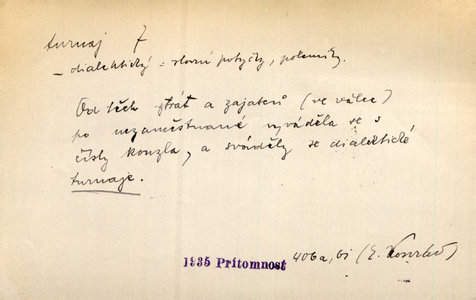 turnaj 7
– dialektický = slovní potyčky, polemiky.
Od těch ztrát a zajatců (ve válce)
po nezaměstnané vyváděla se s
čísly kouzla, a sváděly se dialektické
turnaje.
1935 Přítomnost 406a, bi (E.